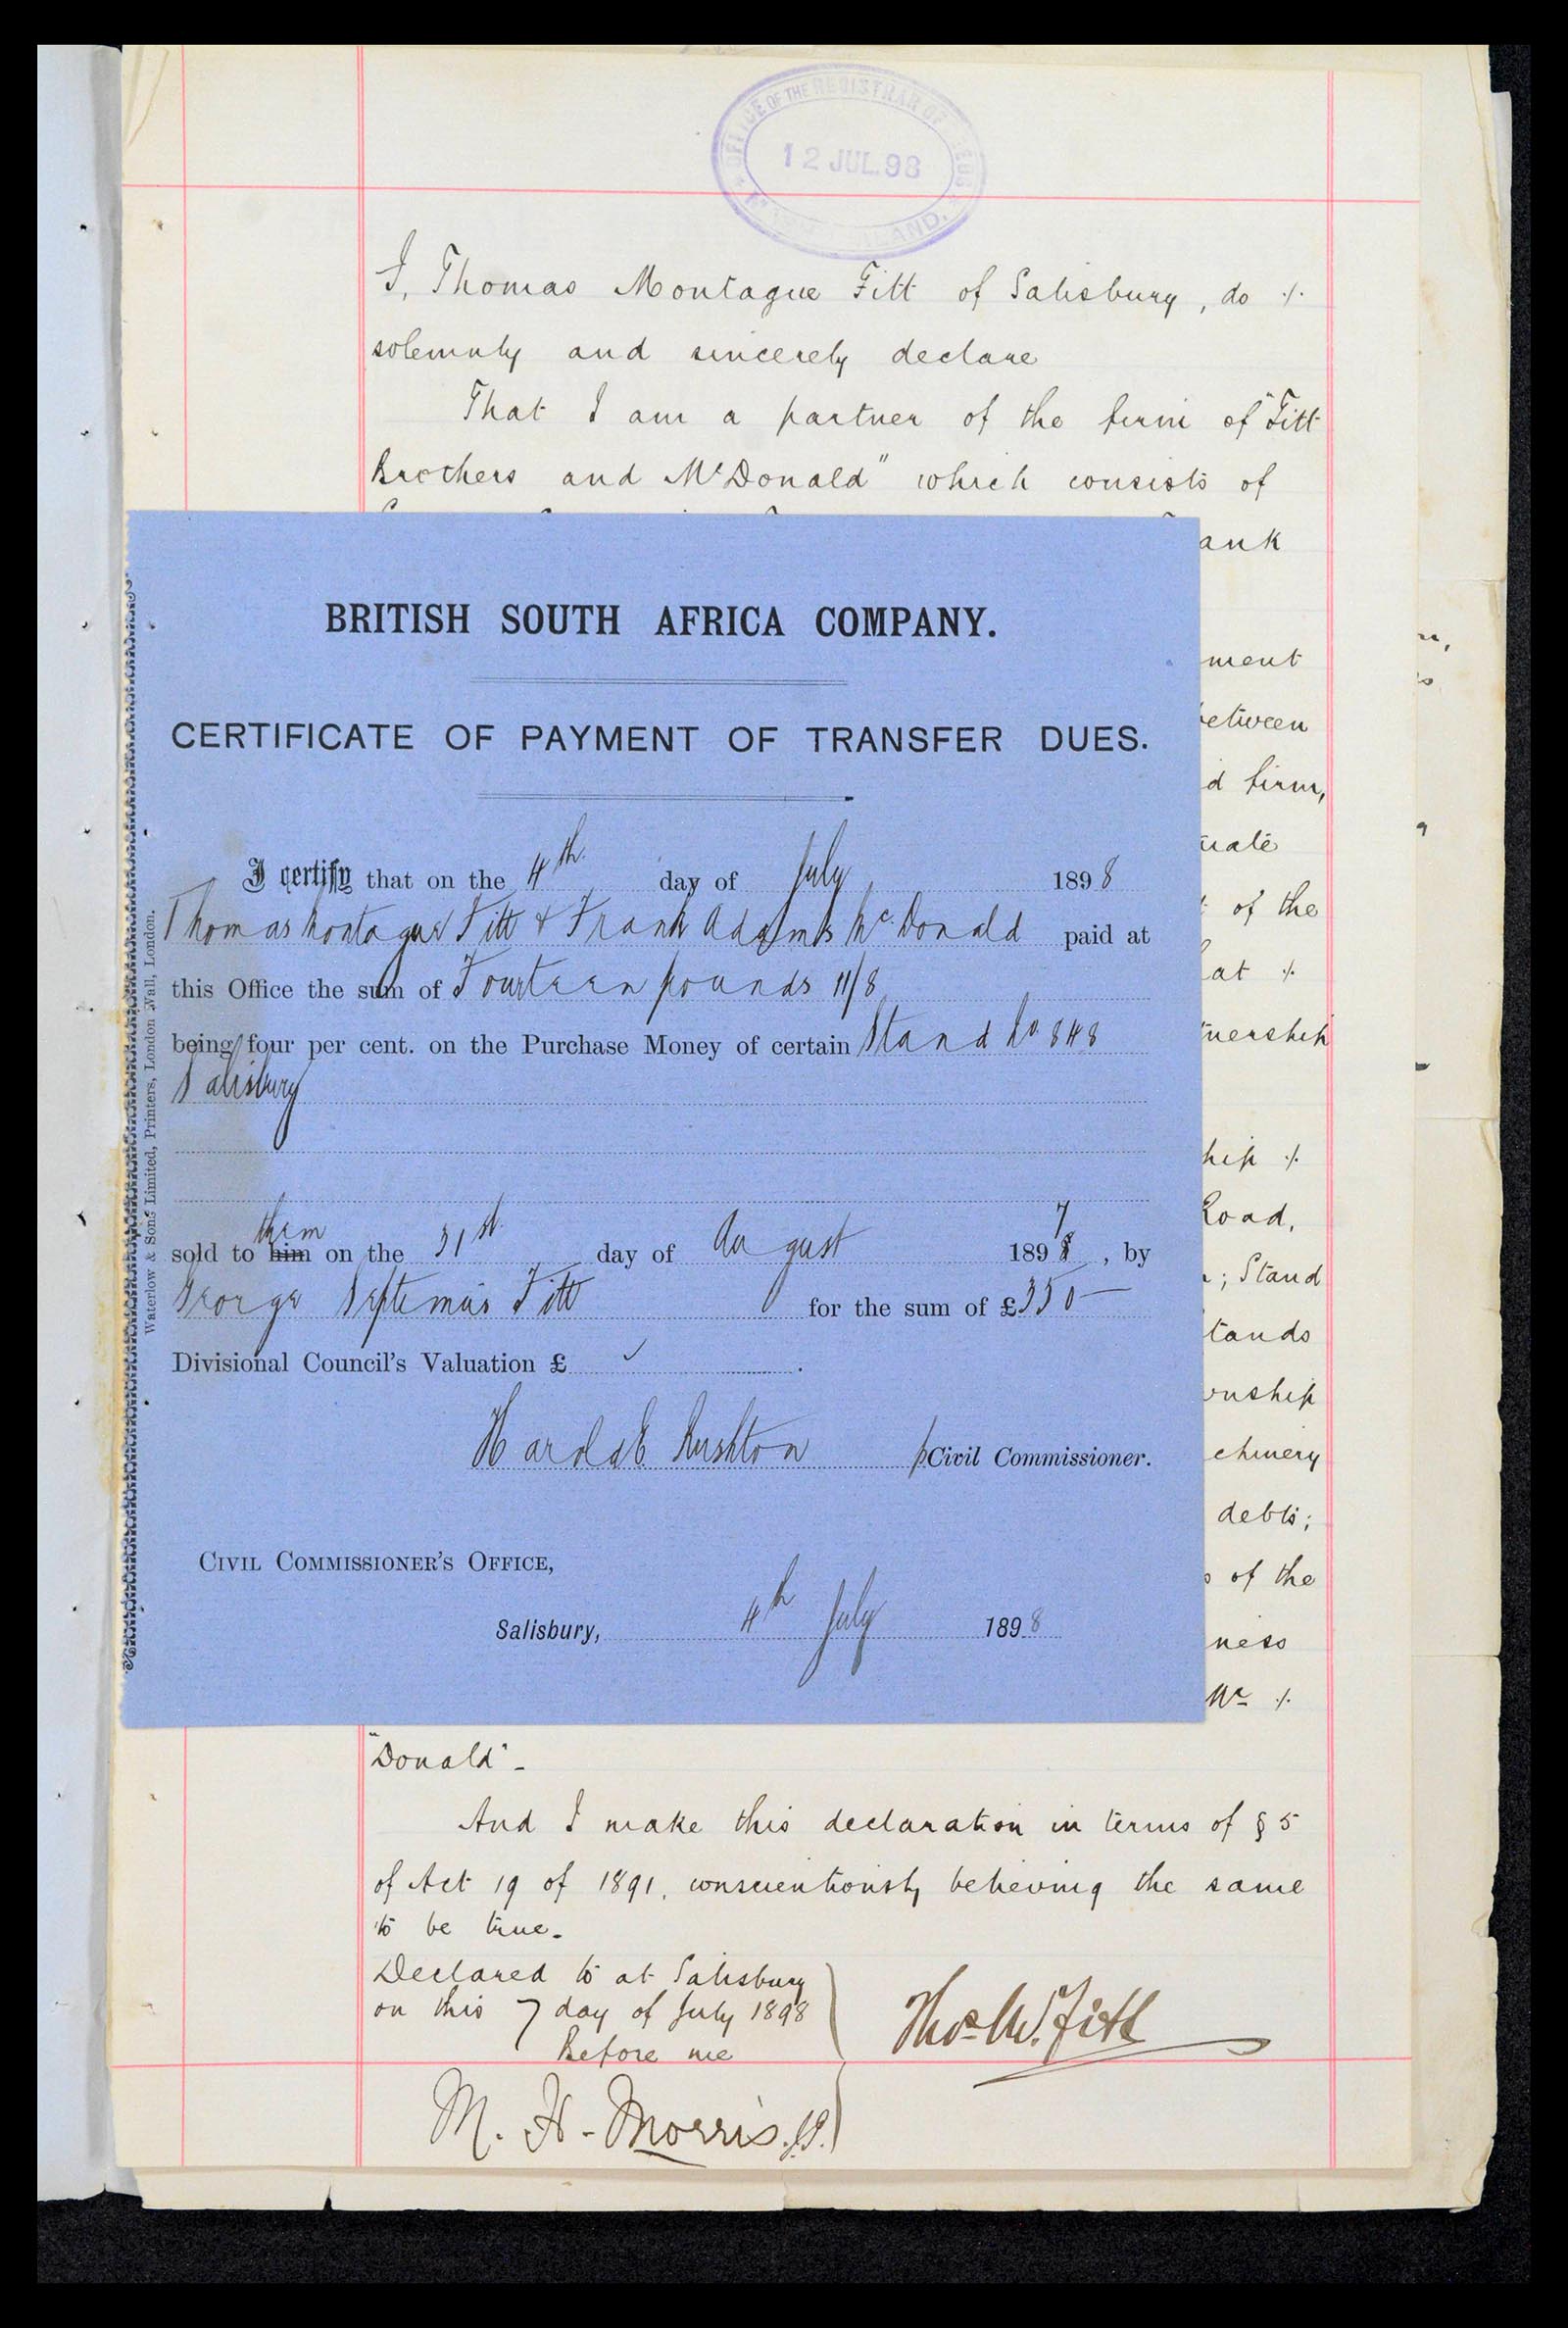 OFFICE OF THE REGISTRAR OF DEEDS
12 JUL. 98
I, Thomas Montague Fitt of Salisbury, do ./.
solemnly and sincerely declare
That I am a partner of the firm of "Fitt
Brothers and McDonald" which consists of
ank
ment
between
d firm,
uate
of the
at ./.
nership
hip ./.
Road,
; Stand
tands
wnship
chinery
debts;
of the
ness
Mc ./.
BRITISH SOUTH AFRICA COMPANY.
CERTIFICATE OF PAYMENT OF TRANSFER DUES.
I certify that on the 4th day of July 1898
Thomas Montague Fitt & Frank Adams McDonald paid at
this Office the sum of Fourteen pounds 11/8
being four per cent. on the Purchase Money of certain Stand No 848
Salisbury
them
sold to him on the 31st day of August 1897, by
George Septimus Fitt for the sum of £350—
Divisional Council's Valuation £ .
Rushton p Civil Commissioner.
CIVIL COMMISSIONER'S OFFICE,
Salisbury, 4th July 1898
Waterlow & Sons Limited, Printers, London Wall, London.
"Donald".-
And I make this declaration in terms of § 5
of Act 19 of 1891, conscientiously believing the same
to be true.-
Declared to at Salisbury
on this 7 day of July 1898
Before me
Thos M. Fitt
M. H. Morris. J.P.